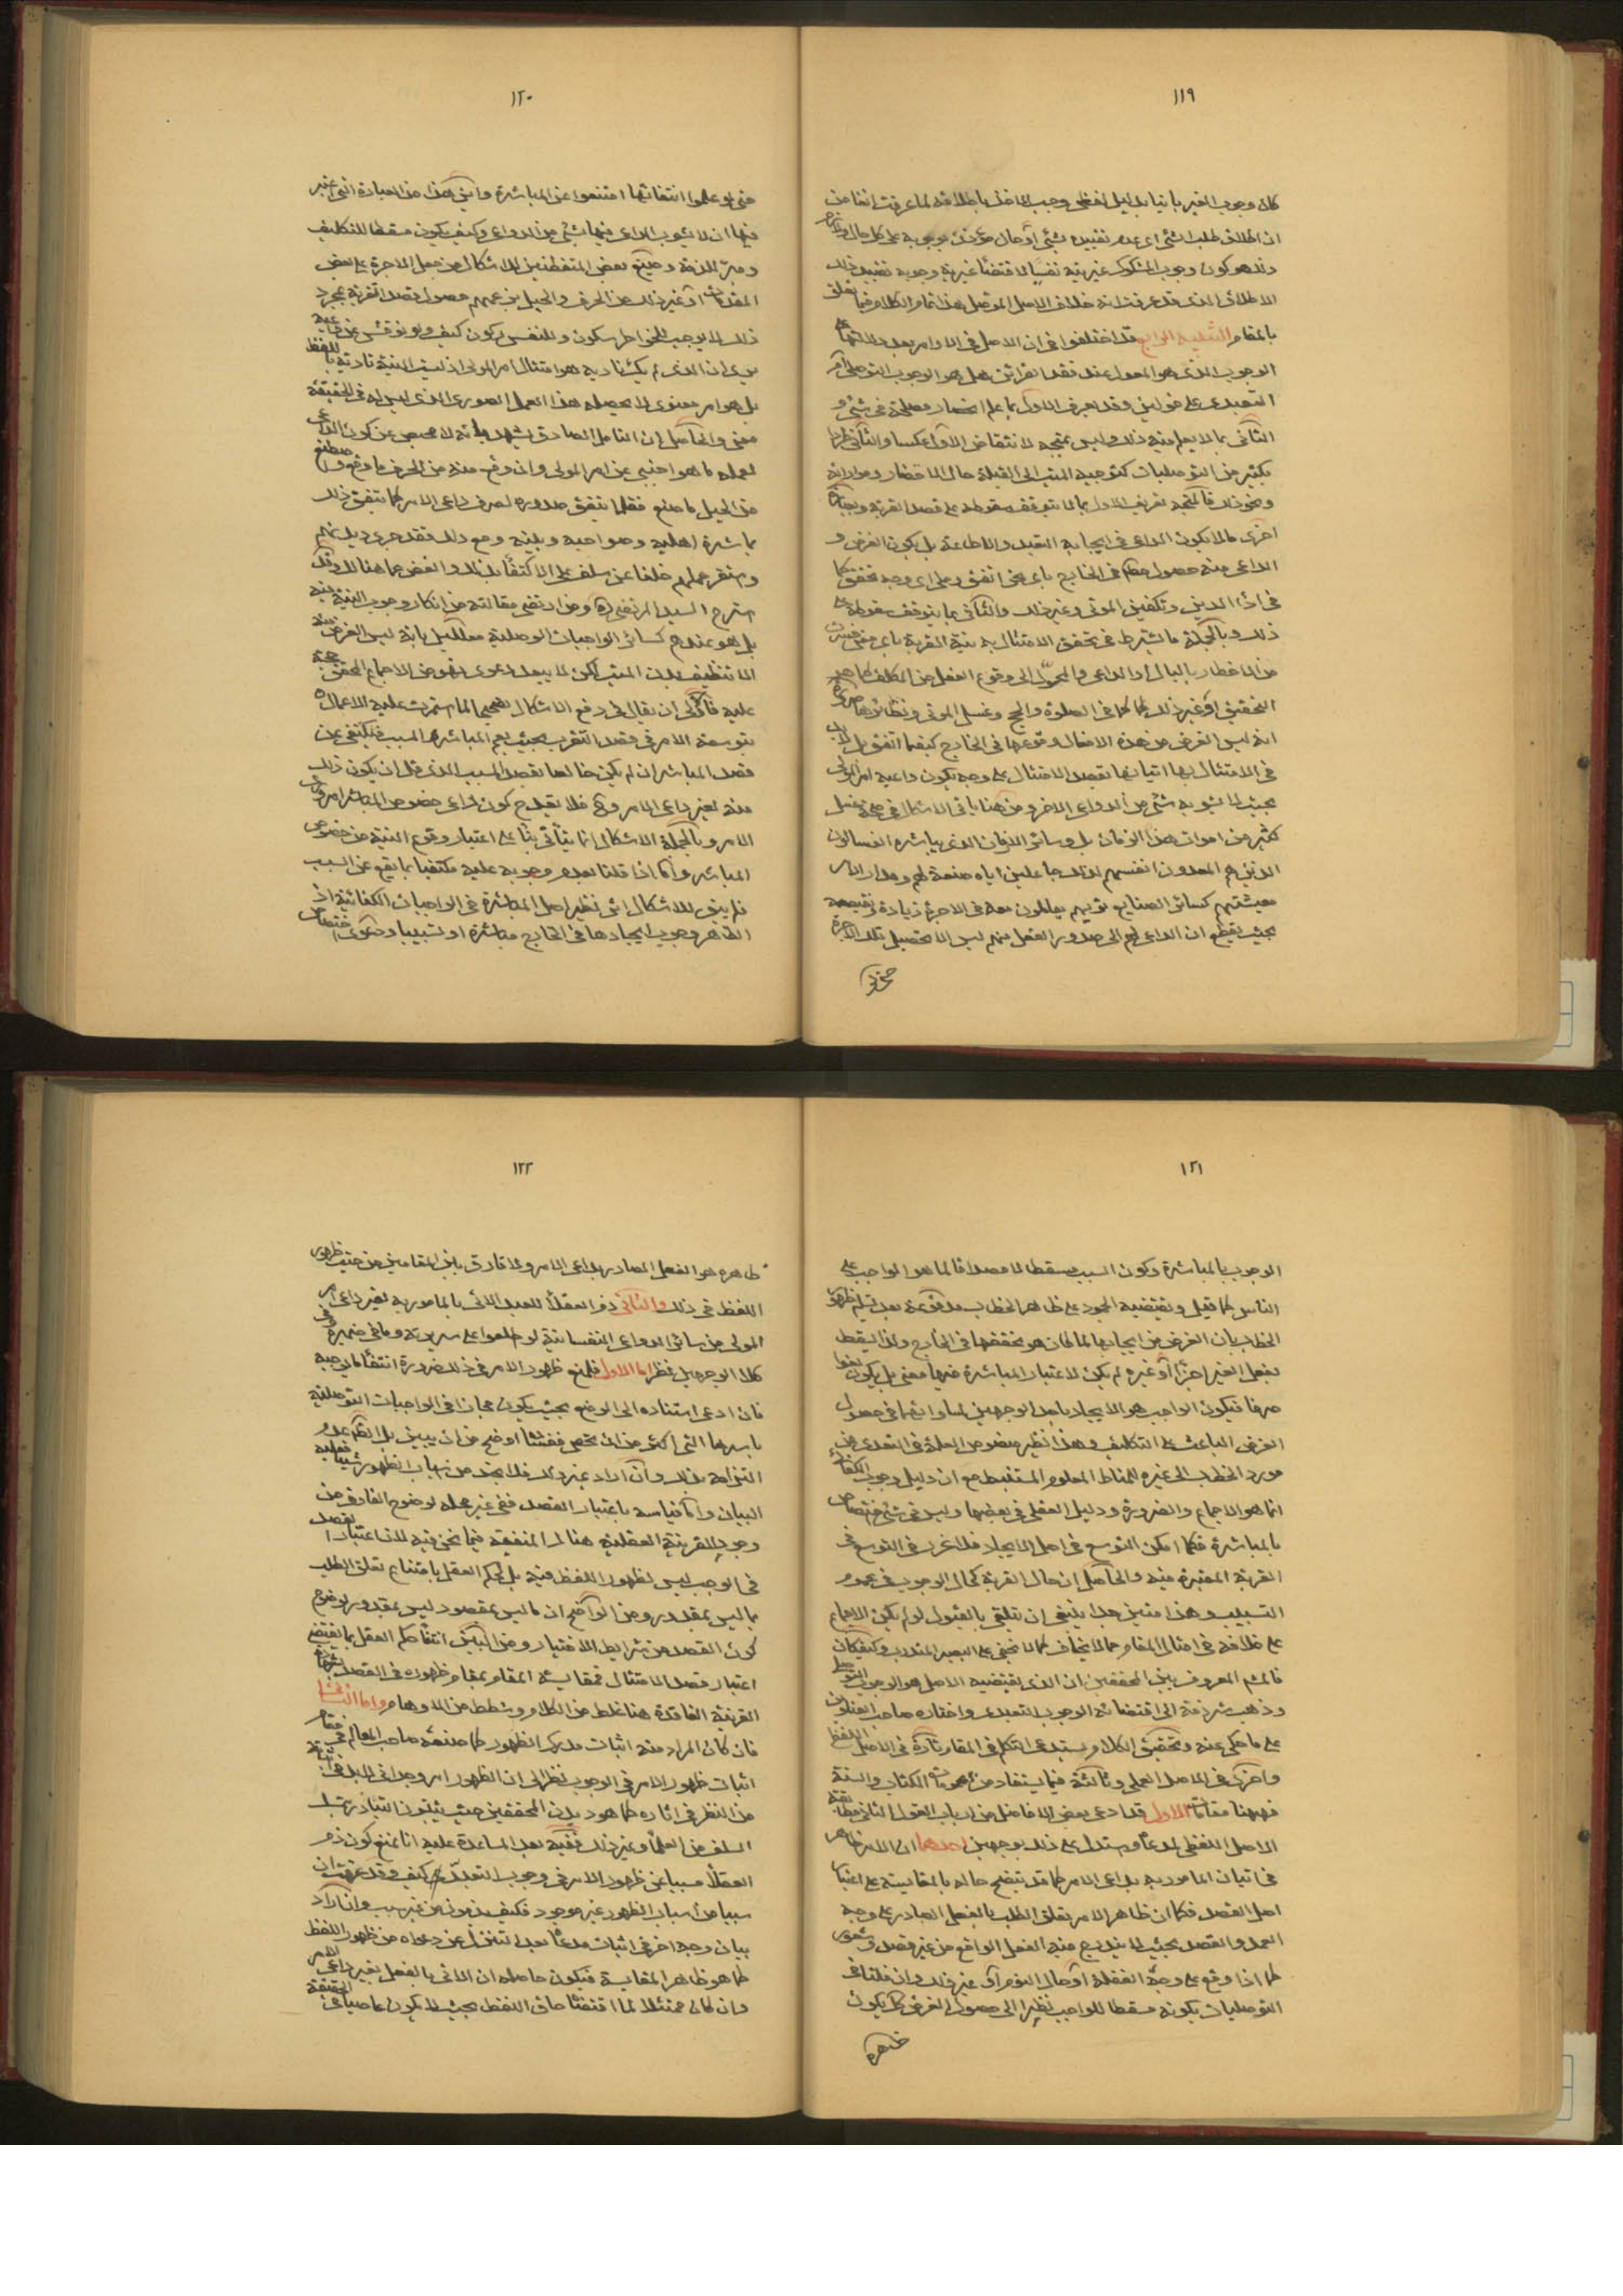 ١١٩
كان وجوب الغير بانيا بدليل لفظي وجب الاخذ باطلاقه لما عرفت انفا من
ان اطلاق طلب الشئ اى عدم تقييده بشئ او حال
وذلك هو كون وجوب المشكوك غيريته نفسيا لاقتضاء غيرية وجوبه تقييد ذلك
الاطلاق الذى قد عرفت انه خلاف الاصل هذا تمام الكلام فيما يتعلق
بالمقام التنبيه الرابع قد اختلفوا فى ان الاصل فى الاوامر بعد دلالتها على
الوجوب الذى هو المعول عند فقد القرائن هل هو الوجوب التوصلى او
التعبدى على قولين وقد يعرف الاول بما علم انحصار مصلحته فى شئ و
الثانى بما لا يعلم منه ذلك وليس بمتجه لانتقاض الاول عكسا والثانى طردا
بكثير من التوصليات كتوجيه الميت الى القبلة حال الاحتضار ومواراته
ونحو ذلك فالمتجه تعريف الاول بما لا يتوقف سقوطه على قصد القربة وبعبارة
اخرى ما لا يكون الداعى فى ايجابه التعبد والاطاعة بل يكون الغرض و
الداعى منه حصول فى الخارج باى نحو اتفق وعلى اى وجه تحقق كما
فى اداء الدين وتكفين الموتى وغير ذلك والثانى بما يتوقف سقوطه على
ذلك وبالجملة ما يشترط فى تحقق الامتثال به نية القربة باى معنى فسرت
من الاخطار بالبال او الداعى والمحرك الى وقوع الفعل من المكلف كما هو
التحقيق او غير ذلك كما فى الصلوة والحج وغسل الموتى ونظائرها
انه ليس الغرض من هذه الافعال وقوعها فى الخارج كيفما اتفق بل لابد
فى الامتثال بها اتيانها بقصد الامتثال على وجه يكون داعيه امر المولى
بحيث لا يشوبه شئ من الدواعى الاخر ومن هنا ياتى الاشكال فى صحة غسل
كثير من اموات هذا الزمان بل وسائر الازمان الذى يباشره الغسالون
الذين هم المعدون انفسهم لذلك جاعلين اياه صنعة لهم ومدار الامر
معيشتهم كسائر الصنايع تريهم يعاملون معه فى الاجرة زيادة ونقيصة
بحيث يقطع ان الداعى لهم الى صدور الفعل منهم ليس الا تحصيل تلك الاجرة
١٢٠
حتى لو علموا انتفائها امتنعوا عن المباشرة واين هذا من العبادة التى اعتبر
فيها ان لا يشوب الداعى فيها بشئ من الدواعى وكيف يكون مسقطا للتكليف
ومبرء للذمة وصنع بعض المتفطنين للاشكال من جعل الاجرة على بعض
المقدمات او غير ذلك من الحرف والحيل بزعمهم حصول قصد القربة بمجرد
ذلك لا يوجب للخواطر سكون وللنفس ركون كيف ولو نوقش
بل هو امر معنوى لا يحصله هذا العمل الصورى الذى ليس له فى الحقيقة
معنى والحاصل ان التامل الصادق يشهد بانه لا محيص عن كون الداعى
لعمله ما هو اجنبى عن امر المولى وان وقع منه من الحرف ما وقع واصطنع
من الحيل ما صنع فقلما يتفق صدوره لصرف داعى الامر كما يتفق ذلك
بمباشرة اهليه وصواحبه وبنيه ومع ذلك فقد جرى ديدنهم
واستقر عملهم خلفا عن سلف على الاكتفاء بذلك والغض عما هنالك وقد
استرح السيد المرتضى ره ومن ارتضى مقالته من انكار وجوب النية فيه
بل هو عندهم كسائر الواجبات التوصلية معللين بانه ليس الغرض منه
الا تنظيف بدن الميت لكن لا يبعد دعوى نهوض الاجماع المحقق حجة
عليه فالاولى ان يقال فى دفع الاشكال تصحيحا لما استمرت عليه الاعمال
بتوسعة الامر فى قصد التقرب بحيث يعم المباشر والسبب فيكتفى عن
قصد المباشر ان لم يكن خالصا بقصد السبب الذى قل ان يكون ذلك
منه لغير داعى الامر وح فلا يقدح كون داعى خصوص المباشر امر غير
الامر وبالجملة الاشكال انما يتاتى بناء على اعتبار وقوع النية من خصوص
المباشر واما اذا قلنا بعدم وجوبه عليه مكتفيا بما يقع عن السبب
فلم يبق للاشكال اثر نظير اصل المباشرة فى الواجبات الكفائية اذ
الظاهر وجوب ايجادها فى الخارج مباشرة او تسبيبا ودعوى اختصاص
١٢١
الوجوب بالمباشرة وكون السبب مسقطا لا مصداقا لما هو الواجب على
الناس كما قيل ويقتضيه الجمود على ظاهر الخطاب مدفوعة بعد تسليم ظهور
الخطاب بان الغرض من ايجابها لما كان هو تحققها فى الخارج ولذا يسقط
بفعل الغير اجيرا او غيره لم يكن لاعتبار المباشرة فيها معنى بل يكون لغوا
صرفا فيكون الواجب هو الايجاد باحد الوجهين لمساواتهما فى حصول
الغرض الباعث على التكليف وهذا نظير منصوص العلة فى التعدى من
مورد الخطاب الى غيره للمناط المعلوم المستنبط مع ان دليل وجوب الكفائى
انما هو الاجماع والضرورة ودليل العقلى فى بعضها وليس فى شئ اختصاص
بالمباشرة فكما امكن التوسع فى اصل الايجاد فلا غرو فى التوسع فى
القربة المعتبرة فيه والحاصل ان حال القربة كحال الوجوب فى عموم
التسبيب وهذا متين جدا ينبغى ان يتلقى بالقبول لو لم يكن الاجماع
على خلافه فى امثال المقام كما لا يخفى على البصير المتدرب وكيف كان
فالمشهور المعروف بين المحققين ان الذى يقتضيه الاصل هو الوجوب التوصلى
وذهب شرذمة الى اقتضائه الوجوب التعبدى واختاره صاحب العناوين
على ما حكى عنه وتحقيق الكلام يستدعى التكلم فى المقام تارة فى الاصل اللفظى
واخرى فى الاصل العملى وثالثة فيما يستفاد من عمومات الكتاب والسنة
فههنا مقامات الاول قد ادعى بعض الافاضل من ارباب القول الثانى مطابقة
الاصل اللفظى لمدعاه واستدل على ذلك بوجهين احدهما ان الامر ظاهر
فى اتيان المامور به بداعى الامر كما قد يتضح حاله بالمقايسة على اعتبار
اصل القصد فكما ان ظاهر الامر تعلق الطلب بالفعل الصادر على وجه
العمد والقصد بحيث لا يندرج منه الفعل الواقع من غير قصد وشعور
كما اذا وقع على وجه الغفلة او حال النوم او غير ذلك وان قلنا فى
التوصليات بكونه مسقطا للواجب نظرا الى حصول الغرض كك يكون
١٢٢
ظاهره هو الفعل الصادر بداعى الامر ولا فارق بين المقامين من حيث ظهور
اللفظ فى ذلك والثانى ذم العقلاء للعبد الاتى بالمامور به لغير داعى امر
المولى من سائر الدواعى النفسانية لو اطلعوا على سريرته وما فى ضميره وفى
كلا الوجهين نظر اما الاول فلمنع ظهور الامر فى ذلك ضرورة انتفاء ما يوجبه
فان ادعى استناده الى الوضع بحيث يكون مجازا فى الواجبات التوصلية
باسرها التى اكثر من ان تحصى ففساده اوضح من ان يبين
التزامه بذلك وان اراد غير ذلك فلا نجد من اسباب الظهور شيئا فعليه
البيان واما قياسه باعتبار القصد ففى غير محله لوضوح الفارق من
وجود القرينة العقلية هنالك المنتفية فيما نحن فيه لان اعتبار القصد
فى الوجب ليس لظهور اللفظ فيه بل لحكم العقل بامتناع تعلق الطلب
بما ليس بمقدور ومن الواضح ان ما ليس بمقصود ليس بمقدور لوضوح
كون القصد من شرايط الاختيار ومن البين انتفاء حكم العقل بما يقتضى
اعتبار قصد الامتثال فمقايسة المقام بمقام ظهوره فى القصد بشهادة
القرينة الفاقدة هنا غلط من الكلام وشطط من الاوهام واما الثانى
فان كان المراد منه اثبات مدرك الظهور كما صنعه صاحب المعالم فى مقام
اثبات ظهور الامر فى الوجوب نظرا الى ان الظهور امر وجدانى لابد فى
من النظر فى اثاره كما هو ديدن المحققين حيث يثبتون التبادر
السلف من العلماء وغير ذلك ففيه بعد المساعدة عليه انا نمنع كون ذم
العقلاء مسببا عن ظهور الامر فى وجوب التعبد كيف وقد عرفت ان
سببا من اسباب الظهور غير موجود فكيف يذمون من غير سبب وان اراد
بيان وجه اخر فى اثبات مدعاه بعد التنزل عن دعواه من ظهور اللفظ
كما هو ظاهر المقايسة فيكون حاصله ان الاتى بالفعل بغير داعى الامر
وان كان ممتثلا لما اقتضاه حاق اللفظ بحيث لا يكون عاصيا فى الحقيقة